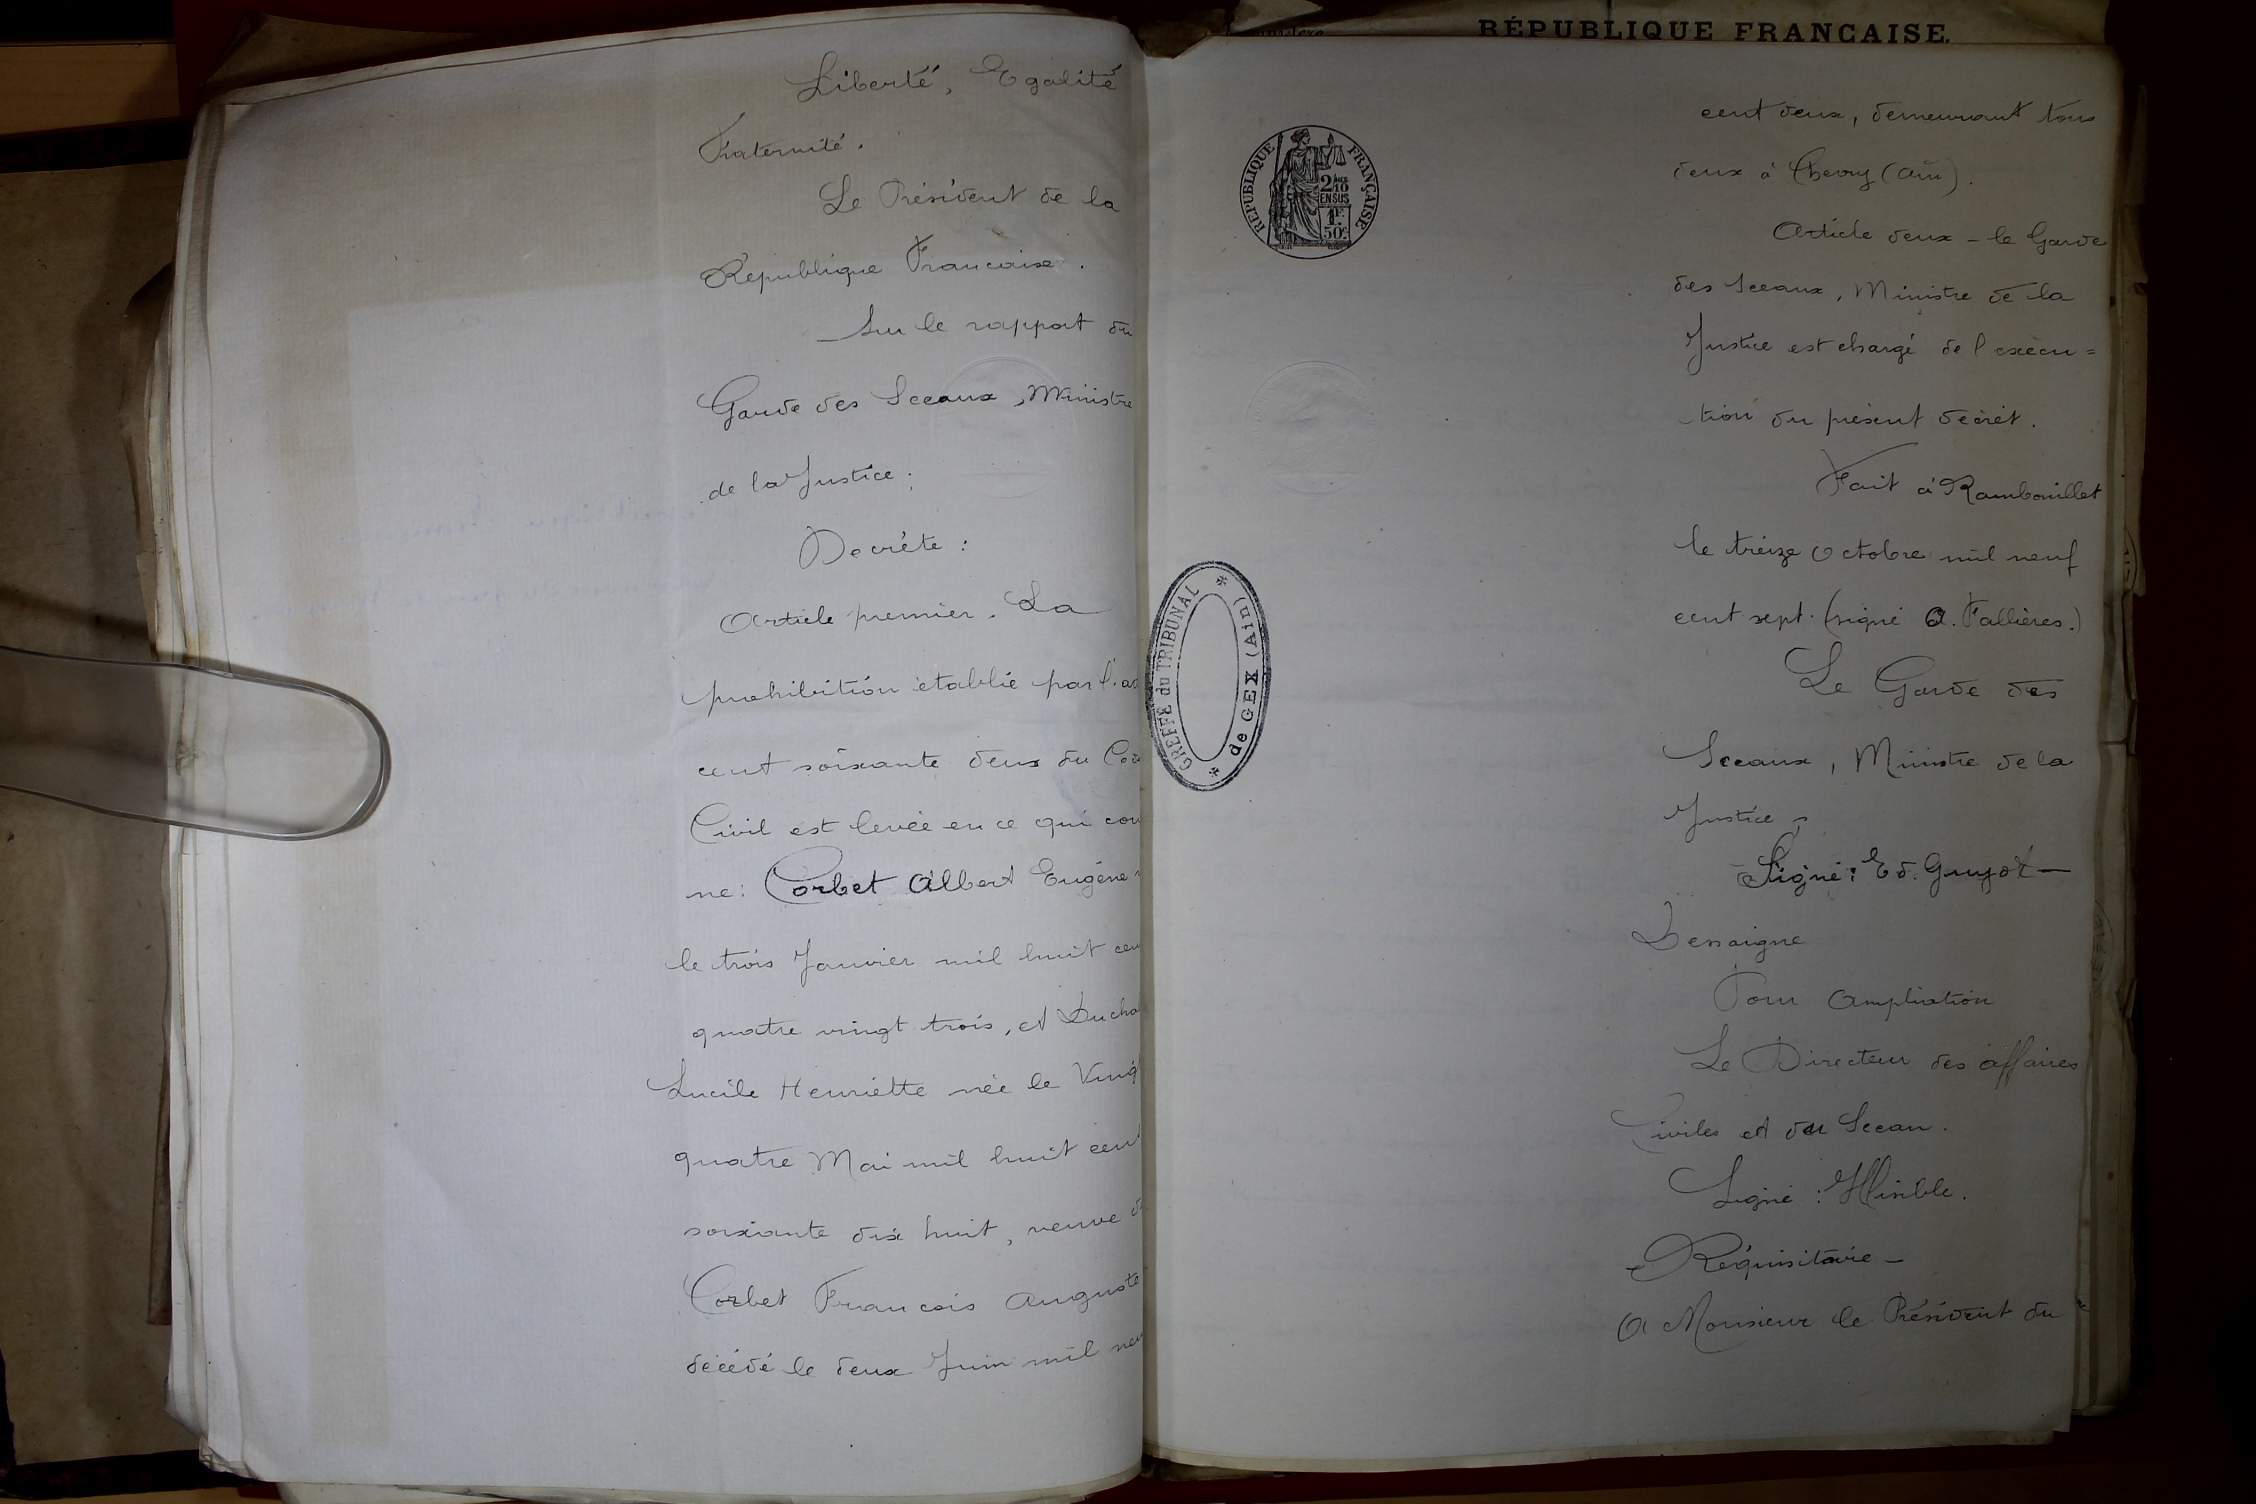 Liberté, Egalité
Fraternité.
Le Président de la
République Francaise.
Sur le rapport du
Garde des Sceaux, Ministre
de la Justice;
Decrète:
Article premier. La
prohibition établie par l'a
cent soixante deux du Co
Civil est levée en ce qui con
ne: Corbet Albert Eugène
le trois Janvier mil huit cen
quatre vingt trois, et Ducha
Lucile Henriette née le Vingt
quatre Mai mil huit cent
soixante dix huit, veuve d
Corbet Francois Auguste
décédé le deux Juin mil neu
RÉPUBLIQUE FRANCAISE.
RÉPUBLIQUE FRANÇAISE
2/10
EN SUS
1F
50c
GREFFE du TRIBUNAL
de GEX (Ain)
cent deux, demeurant tous
deux à Chevry (Ain).
Article deux - le Garde
des Sceaux, Ministre de la
Justice est chargé de l'exécu=
tion du présent décret.
Fait à Rambouillet
le treize Octobre mil neuf
cent sept. (signé A. Fallières.)
Le Garde des
Sceaux, Ministre de la
Justice,
Signé: Ed. Guyot -
Dessaigne
Pour Ampliation
Le Directeur des affaires
Civiles et du Sceau.
Signé: Illisible.
Réquisitoire -
A Monsieur le Président du